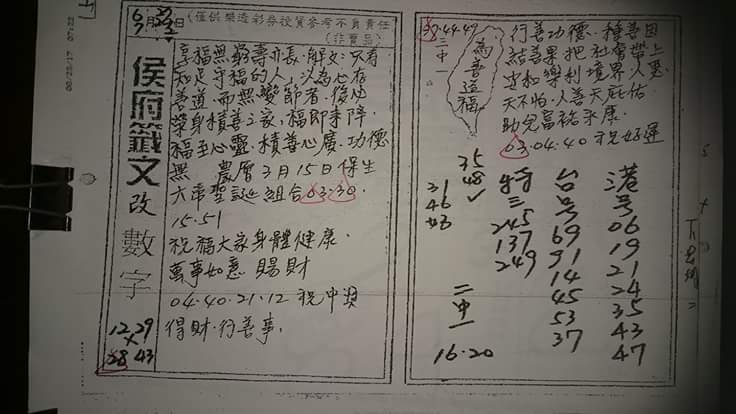 (僅供樂透彩券投資參考不負責任
(非賣品)
侯府籤文改數字
12 29
28 43
享福無窮壽亦長.解文:只有
知足守福的人,以為心存
善道.而無變節者.後必
榮身積善之家,福即來降.
福至心靈.積善心廣.功德
無 農曆3月15日保生
大帝聖誕組合03.30.
15.51
祝福大家身體健康.
萬事如意 賜財
04.40.21.12 祝中獎
得財.行善事.
37.44.49
三中一
為善造福
行善功德.種善因
結善果把社會帶上
境界人惡
天不怕.人善天庇佑
03.04.40 祝好運
35
48
31
46
43
特三
245
137
249
二中一
16.20
台號
69
91
14
45
53
37
港號
06
19
21
24
35
43
47